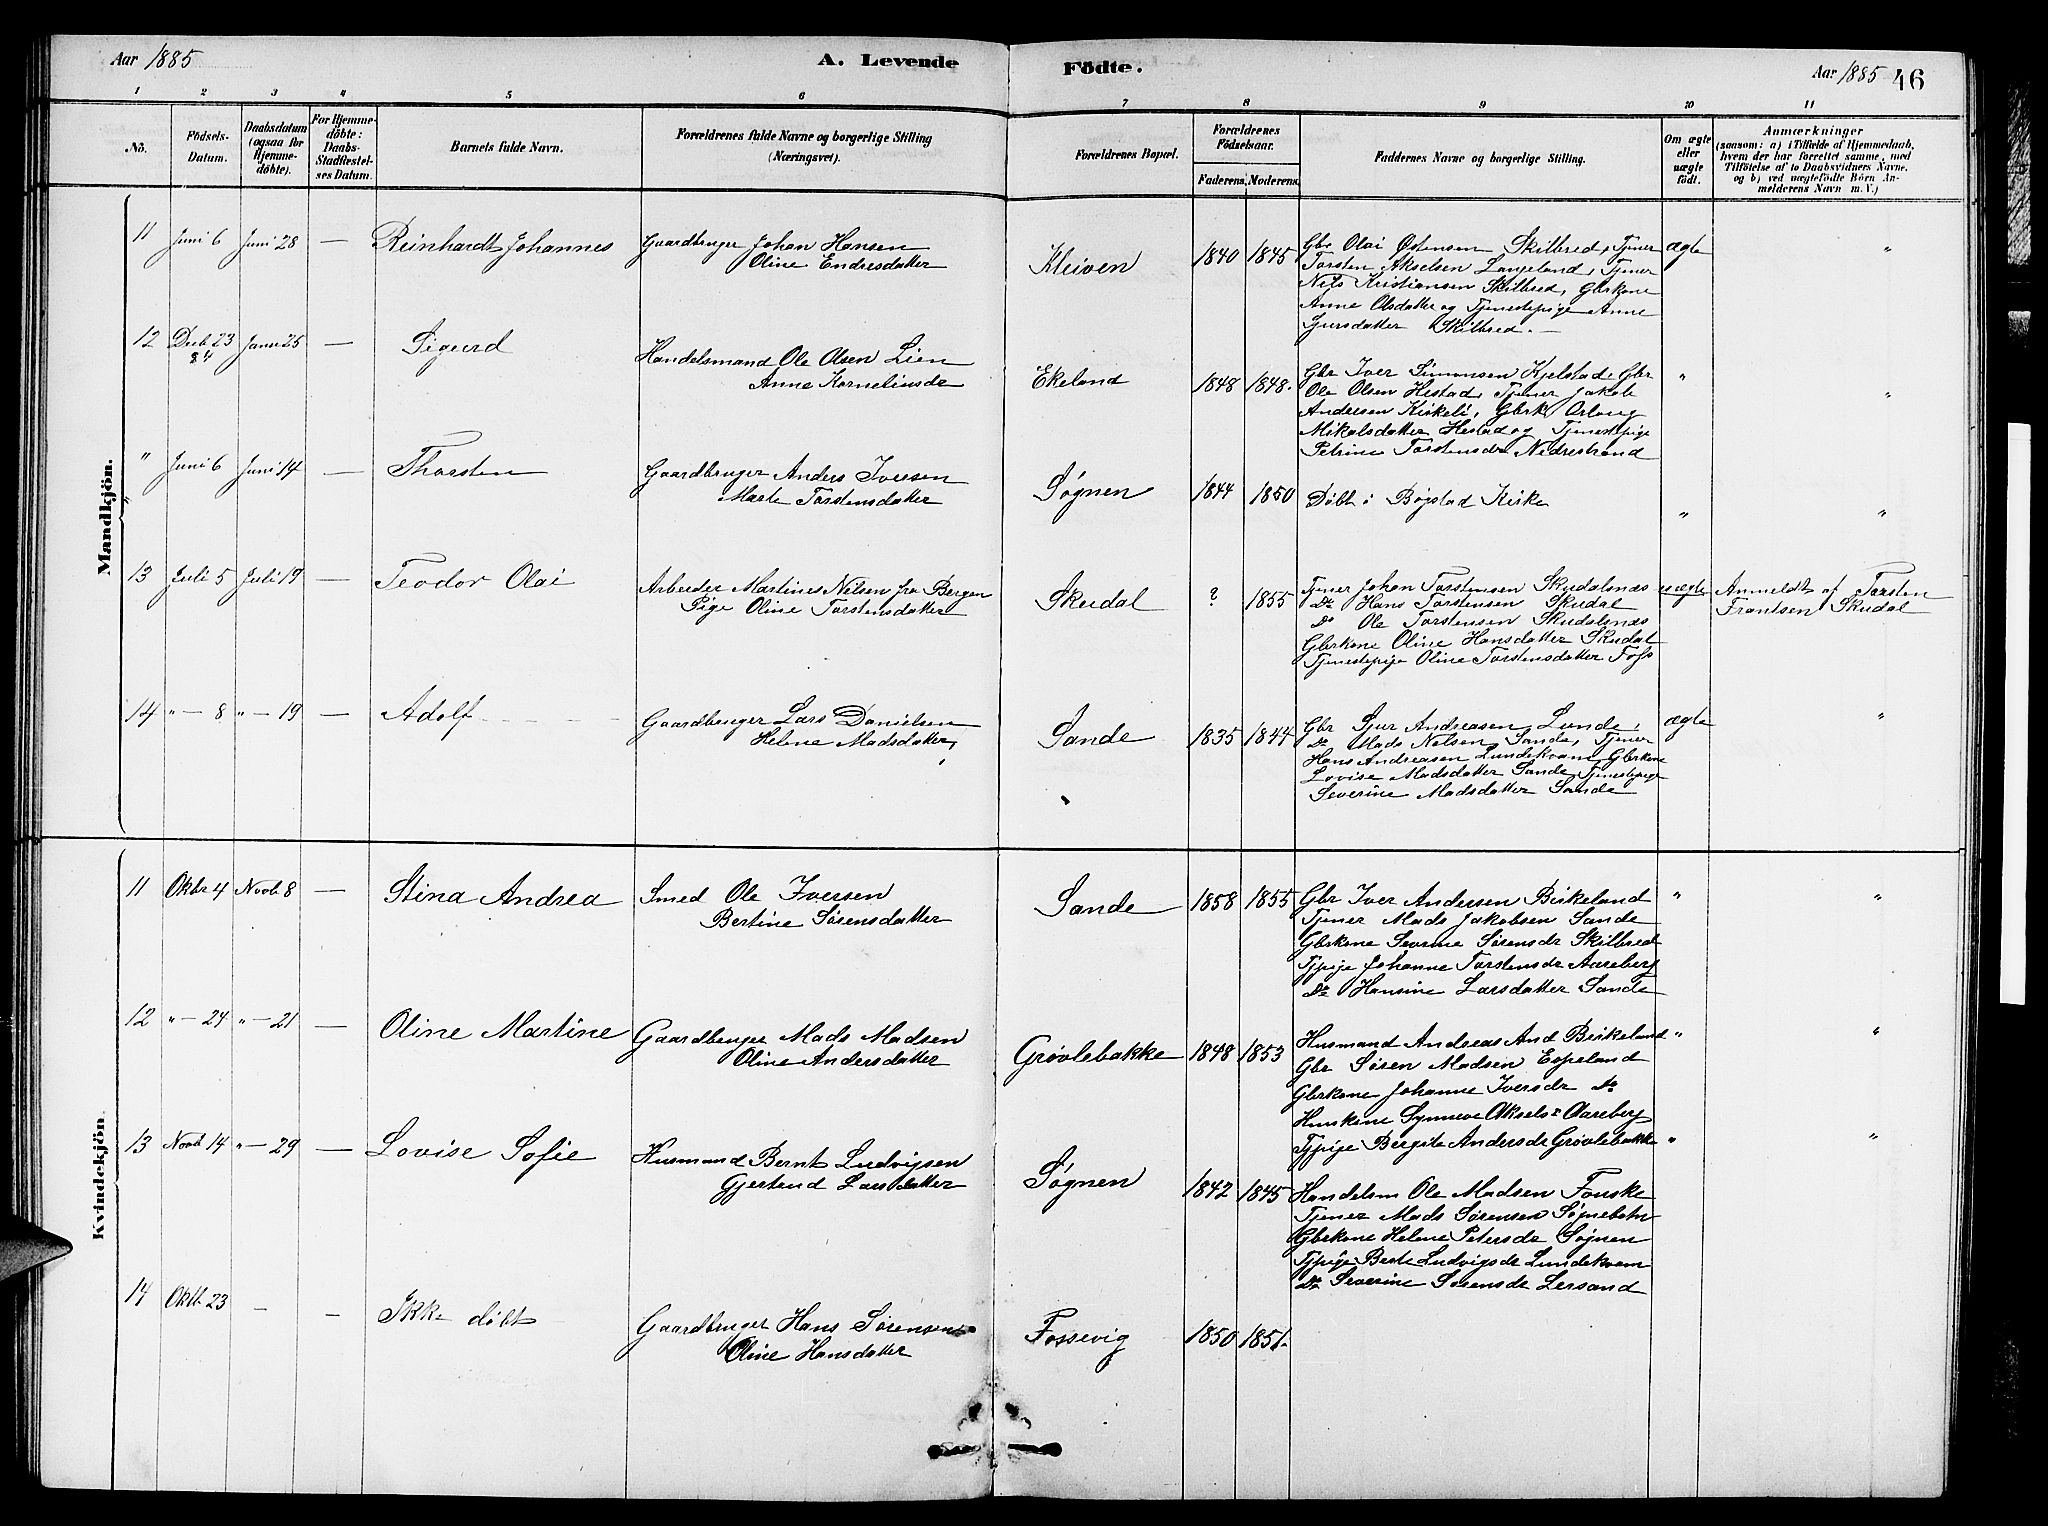 Aar 1885
A. Levende Födte.
Aar 1885 46
1 2 3 4 5 6 7 8 9 10 11
Nö.
Födsels-Datum.
Daabsdatum (ogsaa for Hjemme-döbte).
For Hjemme-döbte: Daabs-Stadfæstel-ses Datum.
Barnets fulde Navn.
Forældrenes fulde Navne og borgerlige Stilling (Næringsvei).
Forældrenes Bopæl.
Forældrenes Födselsaar.
Faderens. Moderens.
Faddernes Navne og borgerlige Stilling.
Om ægte eller uægte födt.
Anmærkninger
(saasom: a) i Tilfælde af Hjemmedaab, hvem der har forrettet samme, med Tilföielse af to Daabsvidners Navne, og b) ved uægtefödte Börn An-melderens Navn m. V.)
Mandkjön.
11 Juni 6 Juni 28 — Reinhardt Johannes
Gaardbruger Johan Hansen
Oline Endresdatter
Kleiven 1840 1845
Gbr Olai Østensen Skilbred, Tjener
Torsten Akselsen Langeland, Tjener
Nils Kristiansen Skilbred, Gbrkone
Anne Olsdatter og Tjenestepige Anne
Sjursdatter Skilbred. —
ægte "
12 Decb 23 84 Janu 25 — Sigurd
Handelsmand Ole Olsen Lien
Anne Korneliusdr
Ekeland 1848 1848.
Gbr Iver Simonsen Kjelstad, Gbr
Ole Olsen Hestad, Tjener Jakob
Andersen Kirkeli, Gbrk Orlaug
Mikalsdatter Hestad og Tjenestepige
Petrine Torstensdr Nedrestrand
" "
" Juni 6 Juni 14 — Thorsten
Gaardbruger Anders Iversen
Marte Torstensdatter
Søgnen 1844 1850
Døbt i Bygstad Kirke
" "
13 Juli 5 Juli 19 — Teodor Olai
Arbeider Martines Nilsen fra Bergen
Pige Oline Torstensdatter
Skudal ? 1855
Tjener Johan Torstensen Skudalsnæs
Do Hans Torstensen Skudal
Do Ole Torstensen Skudalsnæs
Gbrkone Oline Hansdatter Skudal
Tjenestepige Oline Torstensdatter Foss
uægte
Anmeldt af Torsten
Frantsen Skudal
14 " — 8 " — 19 — Adolf
Gaardbruger Lars Danielsen
Helene Madsdatter,
Sande 1835 1844
Gbr Sjur Andreasen Lunde,
Do Mads Nelsen Sande, Tjener
Hans Andreasen Lundekvam, Gbrkone
Lovise Madsdatter Sande, Tjenestepige
Severine Madsdatter Sande
ægte "
Kvindekjön
11 Oktbr 4 Novb 8 — Stina Andrea
Smed Ole Iversen
Bertine Sørensdatter
Sande 1858 1855
Gbr Iver Andersen Birkeland
Tjener Mads Jakobsen Sande
Gbrkone Severine Sørensdr Skilbred
Tjpige Johanne Torstensdr Aareberg
Do Hansine Larsdatter Sande
" "
12 " — 24 " — 21 — Oline Martine
Gaardbruger Mads Madsen
Oline Andersdatter
Grøvlebakke 1848 1853
Husmand Andreas And Birkeland
Gbr Søren Madsen Espeland
Gbrkone Johanne Iversdr do
Huskone Synneve Akselsdr Aareberg
Tjpige Bergite Andersdr Grøvlebakke
" "
13 Novb 14 " — 29 — Lovise Sofie
Husmand Bernt Ludvigsen
Gjertrud Larsdatter
Søgnen 1842 1845
Handelsm Ole Madsen Fouske
Tjener Mads Sørensen Søgnebotn
Gbrkone Helene Petersdr Søgnen
Tjpige Berte Ludvigsdr Lundekvam
Do Severine Sørensdr Lersand
" "
14 Oktb 23 — — Ikke døbt
Gaardbruger Hans Sørensen
Oline Hansdatter
Fossevig 1850 1851.